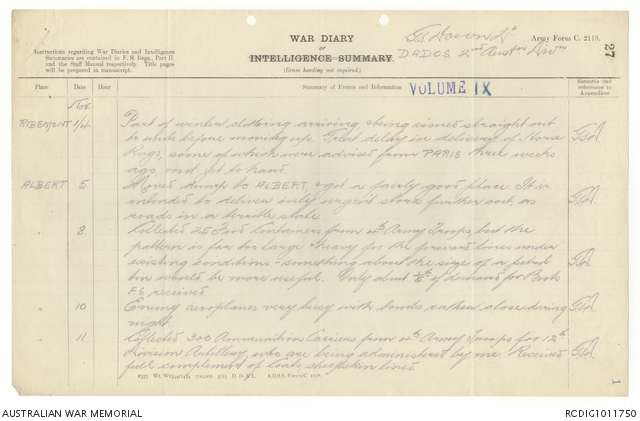 WAR DIARY
or
INTELLIGENCE SUMMARY.
(Erase heading not required.)
Army Form C. 2118.
27
D.A.D.O.S. 2nd Austn Divn
Instructions regarding War Diaries and Intelligence
Summaries are contained in F. S. Regs., Part II
and the Staff Manual respectively. Title pages
will be prepared in manuscript.
Place Date Hour Summary of Events and Information VOLUME IX Remarks and references to Appendices
Nov.
RIBEMONT 1/4 Part of winter clothing arriving & being issued straight out
to units before moving up. Great delay in delivery of Horse
Rugs, some of which were advised from PARIS three weeks
ago and yet to hand.
ALBERT 5 Moved dump to ALBERT & got a fairly good place. It is
intended to deliver only urgent stores further out as
roads in a terrible state.
" 8 Collected 25 Food Containers from 4th Army Troops but the
pattern is far too large & heavy for the present lines under
existing conditions - something about the size of a petrol
tin would be more useful. Only about 1/5 of demand for Boots
F.S. received.
" 10 Enemy aeroplanes very busy with bombs rather close during
night.
" 11 Collected 300 Ammunition Carriers from 4th Army Troops for 12th
Division Artillery who are being administered by me. Received
full complement of Coats sheepskin lined.
1
AUSTRALIAN WAR MEMORIAL
RCDIG1011750